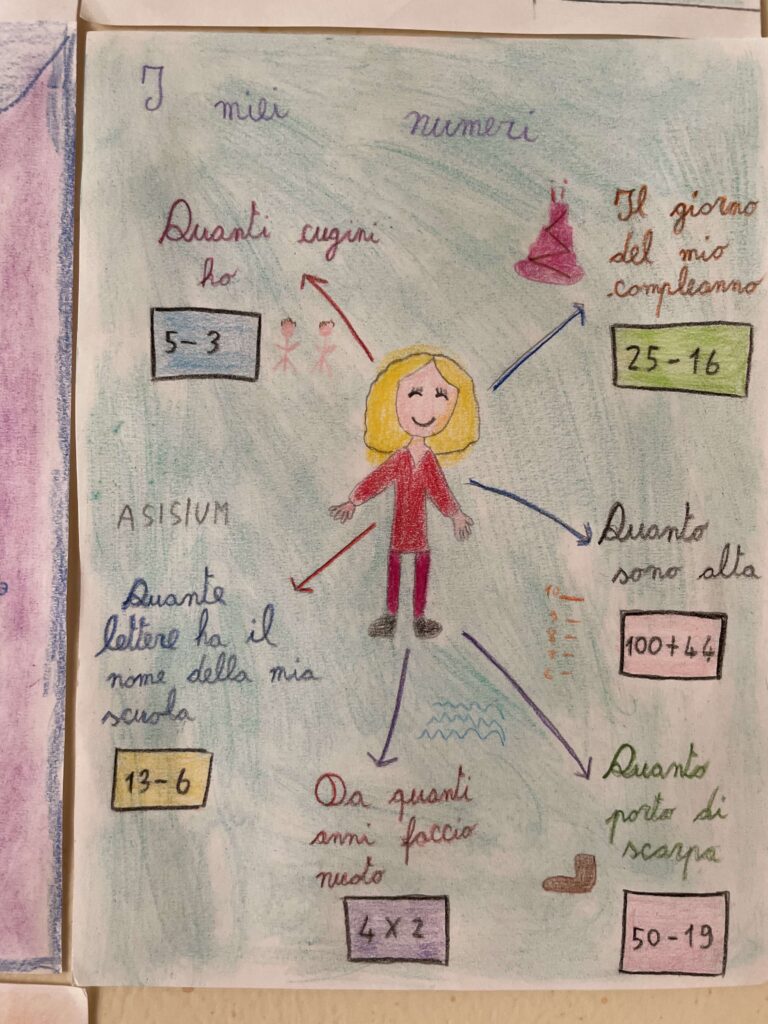 I miei numeri
Quanti cugini
ho
5-3
Il giorno
del mio
compleanno
25-16
ASISIUM
Quante
lettere ha il
nome della mia
scuola
13-6
Quanto
sono alta
100+44
Da quanti
anni faccio
nuoto
4 X 2
Quanto
porto di
scarpa
50-19